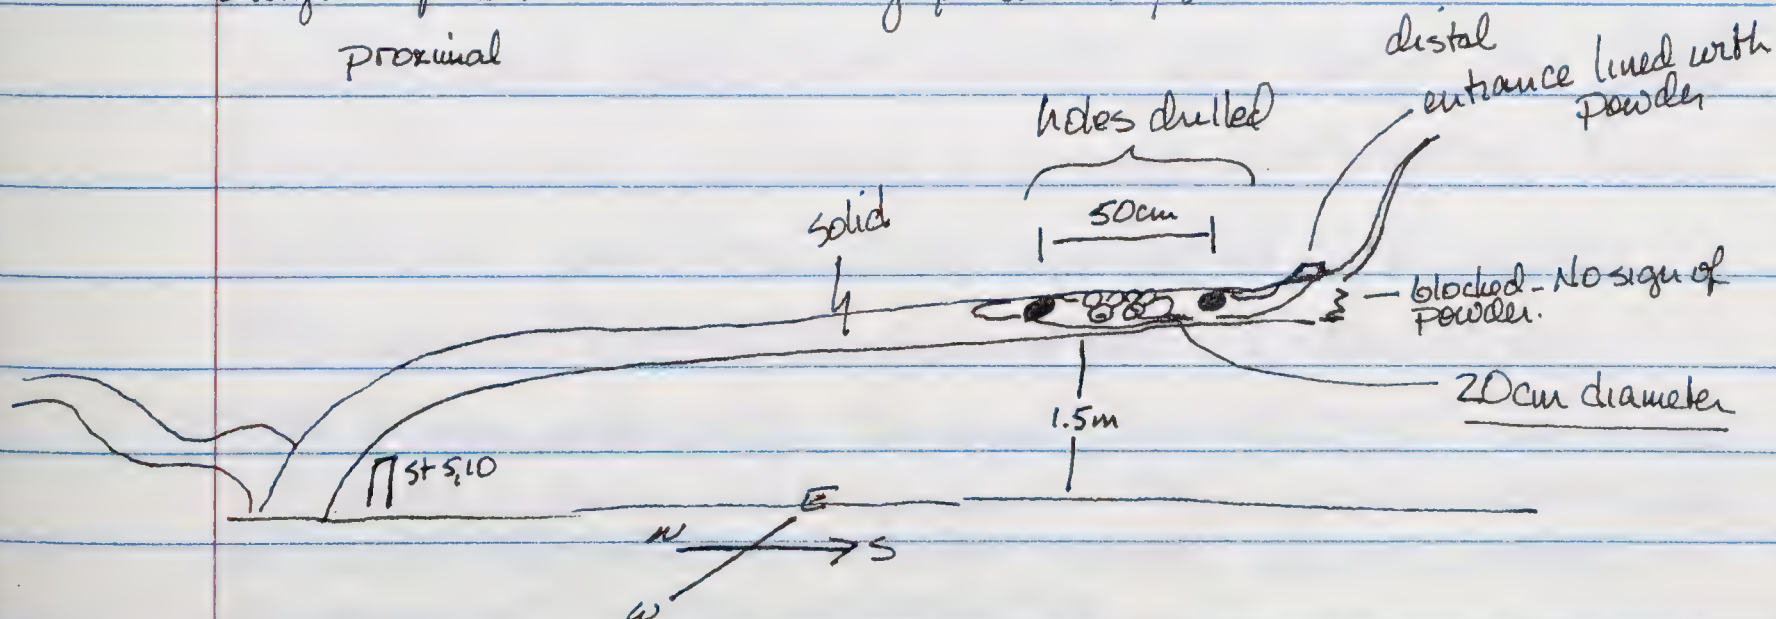 proximal
distal
entrance lined with
powder
holes drilled
50cm
solid
blocked - No sign of
powder.
20cm diameter
1.5m
st 5,10
E
N
S
W